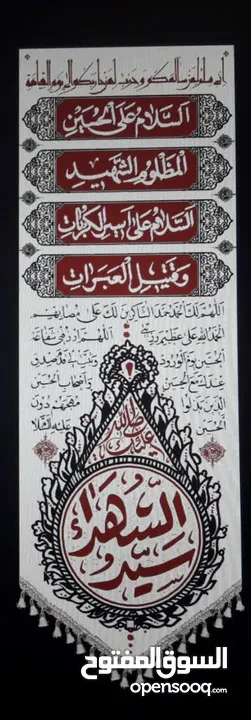 إني سلم لمن سالمكم و حرب لمن حاربكم إلى يوم القيامة
السلام على الحسين
المظلوم الشهيد
السلام على أسير الكربات
وقتيل العبرات
اللهم لك الحمد حمد الشاكرين لك على مصابهم
الحمد لله على عظيم رزيتي اللهم ارزقني شفاعة
الحسين يوم الورود وثبت لي قدم صدق
عندك مع الحسين وأصحاب الحسين
الذين بذلوا مهجهم دون
الحسين عليه السلام
سيد الشهداء
السوق المفتوح
opensooq.com